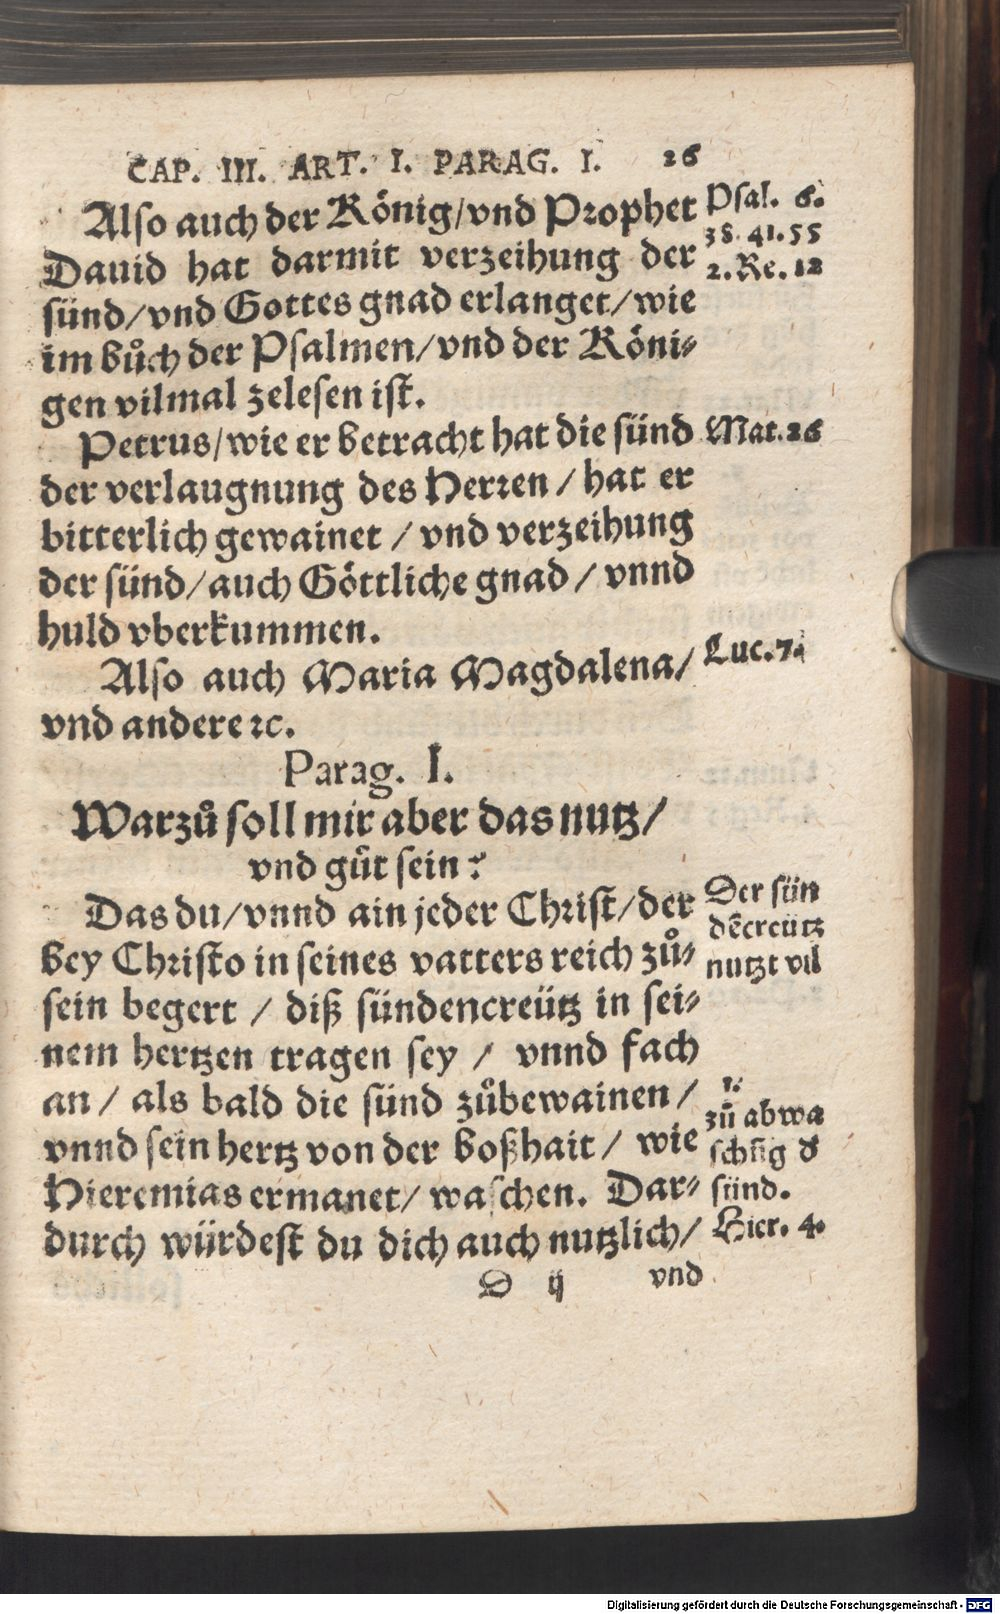 CAP. III. ART. I. PARAG. I. 26
Also auch der König/vnd Prophet
Dauid hat darmit verzeihung der
sünd/vnd Gottes gnad erlanget/wie
im bůch der Psalmen/vnd der Köni-
gen vilmal zelesen ist.
Psal. 6.
38. 41. 55
2. Re. 12
Petrus/wie er betracht hat die sünd
der verlaugnung des Herren / hat er
bitterlich gewainet / vnd verzeihung
der sünd/auch Göttliche gnad / vnnd
huld vberkummen.
Mat. 26
Also auch Maria Magdalena/
vnd andere ꝛc.
Luc. 7.
Parag. I.
Warzů soll mir aber das nutz/
vnd gůt sein?
Das du/vnnd ain jeder Christ/der
bey Christo in seines vatters reich zů-
sein begert / diß sündencreütz in sei-
nem hertzen tragen sey / vnnd fach
an / als bald die sünd zůbewainen /
vnnd sein hertz von der boßhait / wie
Hieremias ermanet/ waschen. Dar-
durch würdest du dich auch nutzlich/
Der sün
dēcreütz
nutzt vil
1.
zů abwa
schūg d
sünd.
Hier. 4.
D ij vnd
Digitalisierung gefördert durch die Deutsche Forschungsgemeinschaft - DFG